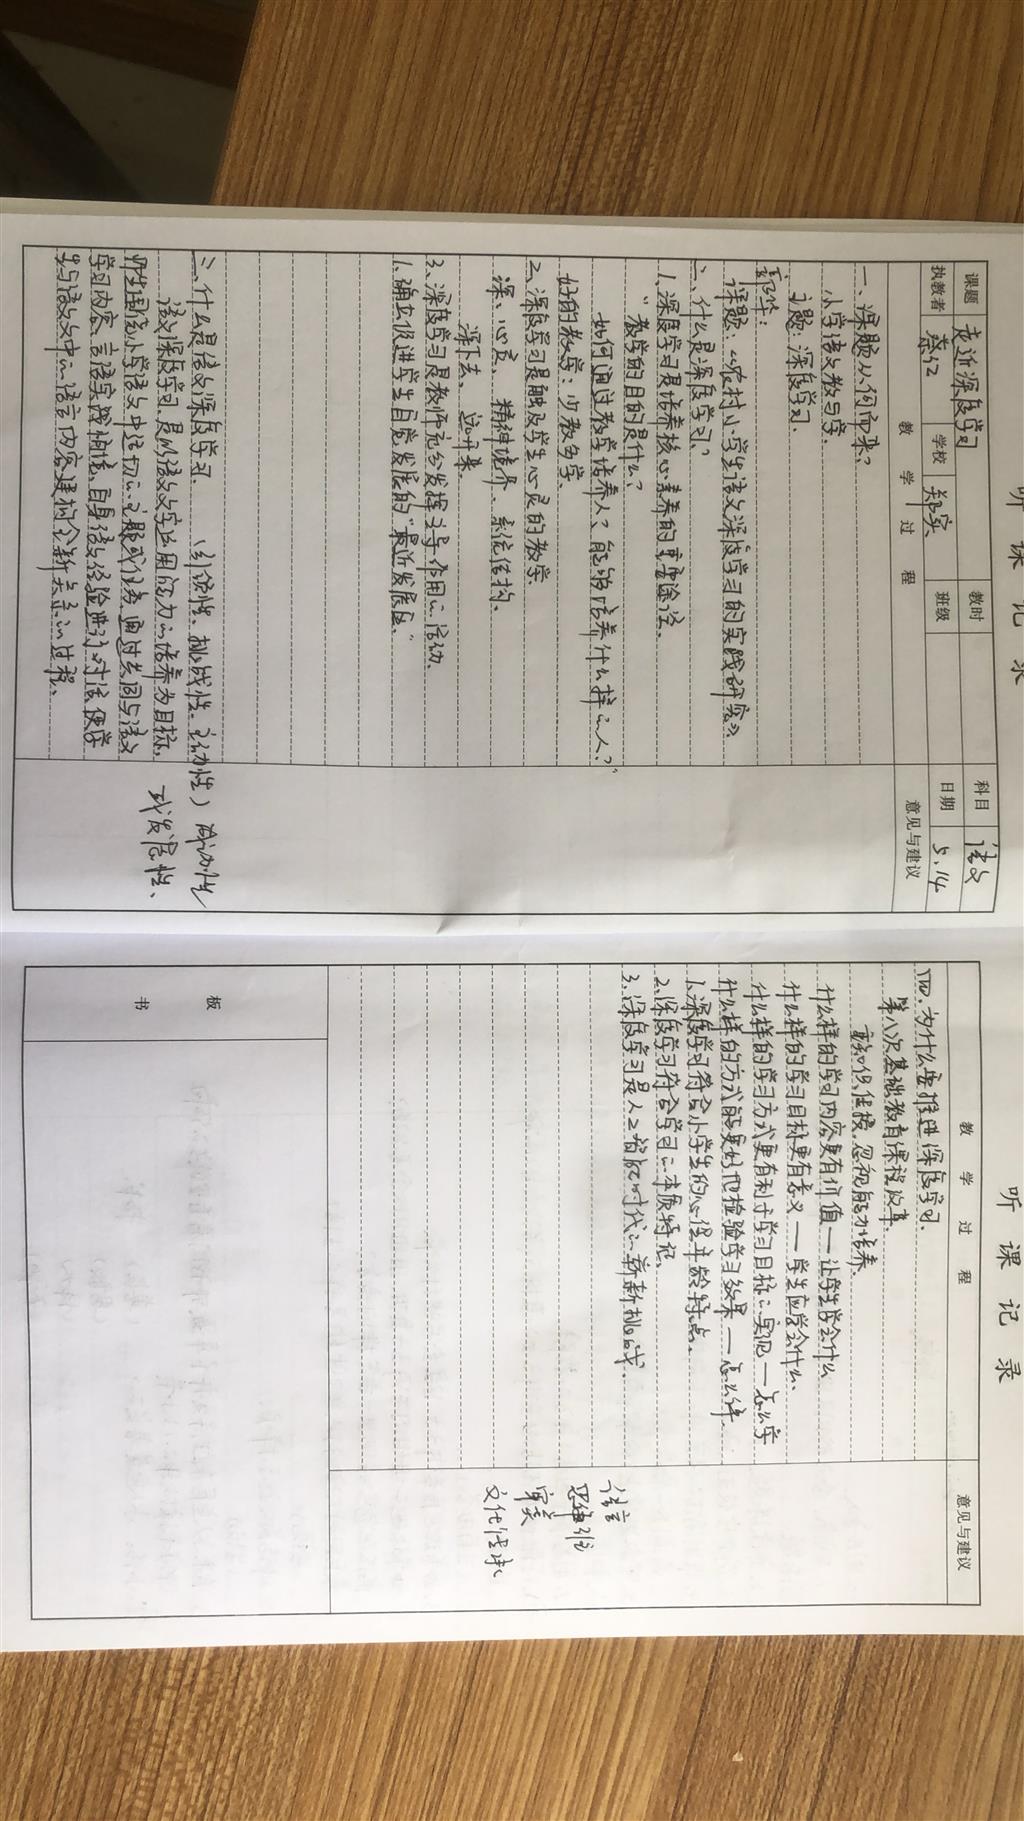 听课记录
课题 走近深度学习 教时 科目 语文
执教者 蔡红 学校 郑实 班级 日期 5.14
教学过程 意见与建议
一、课题从何而来?
小学语文教与学.
主题:深度学习.
课题:《农村小学生语文深度学习的实践研究》
二、什么是深度学习?
1、深度学习是培养核心素养的重要途径.
"教学的目的是什么?
如何通过教学培养人?能够培养什么样的人?"
好的教学:少教多学.
2、深度学习是触及学生心灵的教学.
深:心灵、精神境界、系统结构.
深下去、远开来.
3、深度学习是教师充分发挥主导作用的活动.
1、确立促进学生自觉发展的"最近发展区."
三、什么是语文深度学习. (引领性、挑战性、主动性) 成功性
语文深度学习,是以语文文字运用能力的培养为目标, 或发展性、
师生围绕小学语文中迫切的主题或任务,通过共同与语文
学习内容、言语实践情境、自身语文经验进行对话,使学
生与语文文中的语言内容建构全新关系的过程.
听课记录
教学过程 意见与建议
四、为什么要推进深度学习.
第八次基础教育课程改革.
重知识、住校,忽视能力培养.
什么样的学习内容更有价值——让学生学会什么
什么样的学习目标更有意义——学生应学会什么.
什么样的学习方式更有利于学习目标的实现——怎么学
什么样的方式能更好地检验学习效果——怎么评.
1、深度学习符合小学生的心理年龄特点.
2、深度学习符合学习的本质特征.
3、深度学习是人工智能时代的崭新挑战.
语言
思维
审美
文化传承
板书